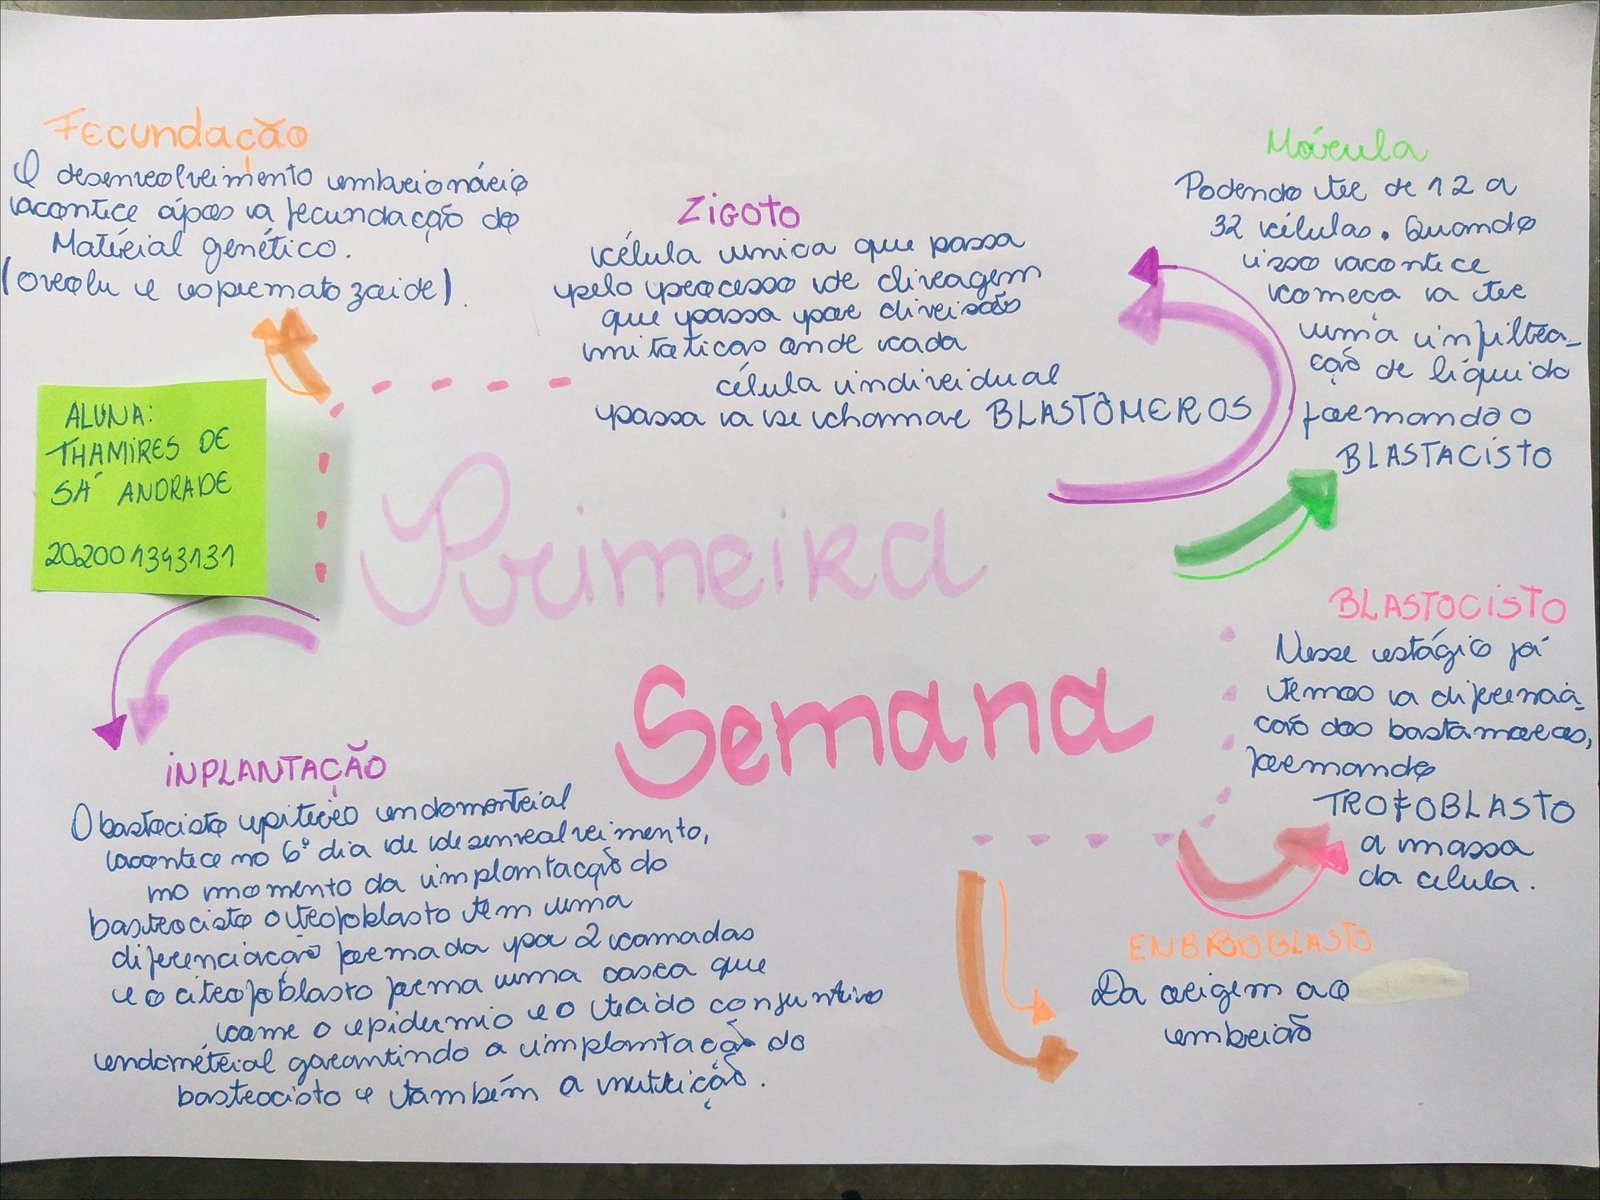 Fecundação
O desenvolvimento embrionário
acontice após a fecundação do
Material genético.
(ovolu e espermatozoide).
ALUNA:
THAMIRES DE
SÁ ANDRADE
202001343131
ZIGOTO
célula unica que passa
pelo processo de clivagem
que passa por divisão
mitoticas onde cada
célula individual
passa a se chamar BLASTÔMEROS
Mórula
Podendo ter de 12 a
32 células. Quando
isso acontece
começa a ter
uma infiltra-
ção de líquido
formando o
BLASTACISTO
Primeira
Semana
BLASTOCISTO
Nesse estágio já
temos a diferencia-
ção dos bastomeros,
formando
TROFOBLASTO
a massa
da celula.
ENBRIOBLASTO
Da origem ao
embrião
INPLANTAÇÃO
O bastocisto epitério endometrial
acontece no 6° dia de desenvolvimento,
no momento da implantação do
bastrocisto o trofoblasto tem uma
diferenciação formada por 2 camadas
e o citrofoblasto forma uma casca que
come o epidermio e o tecido conjuntivo
endométrial garantindo a implantação do
bastrocisto e também a nutrição.